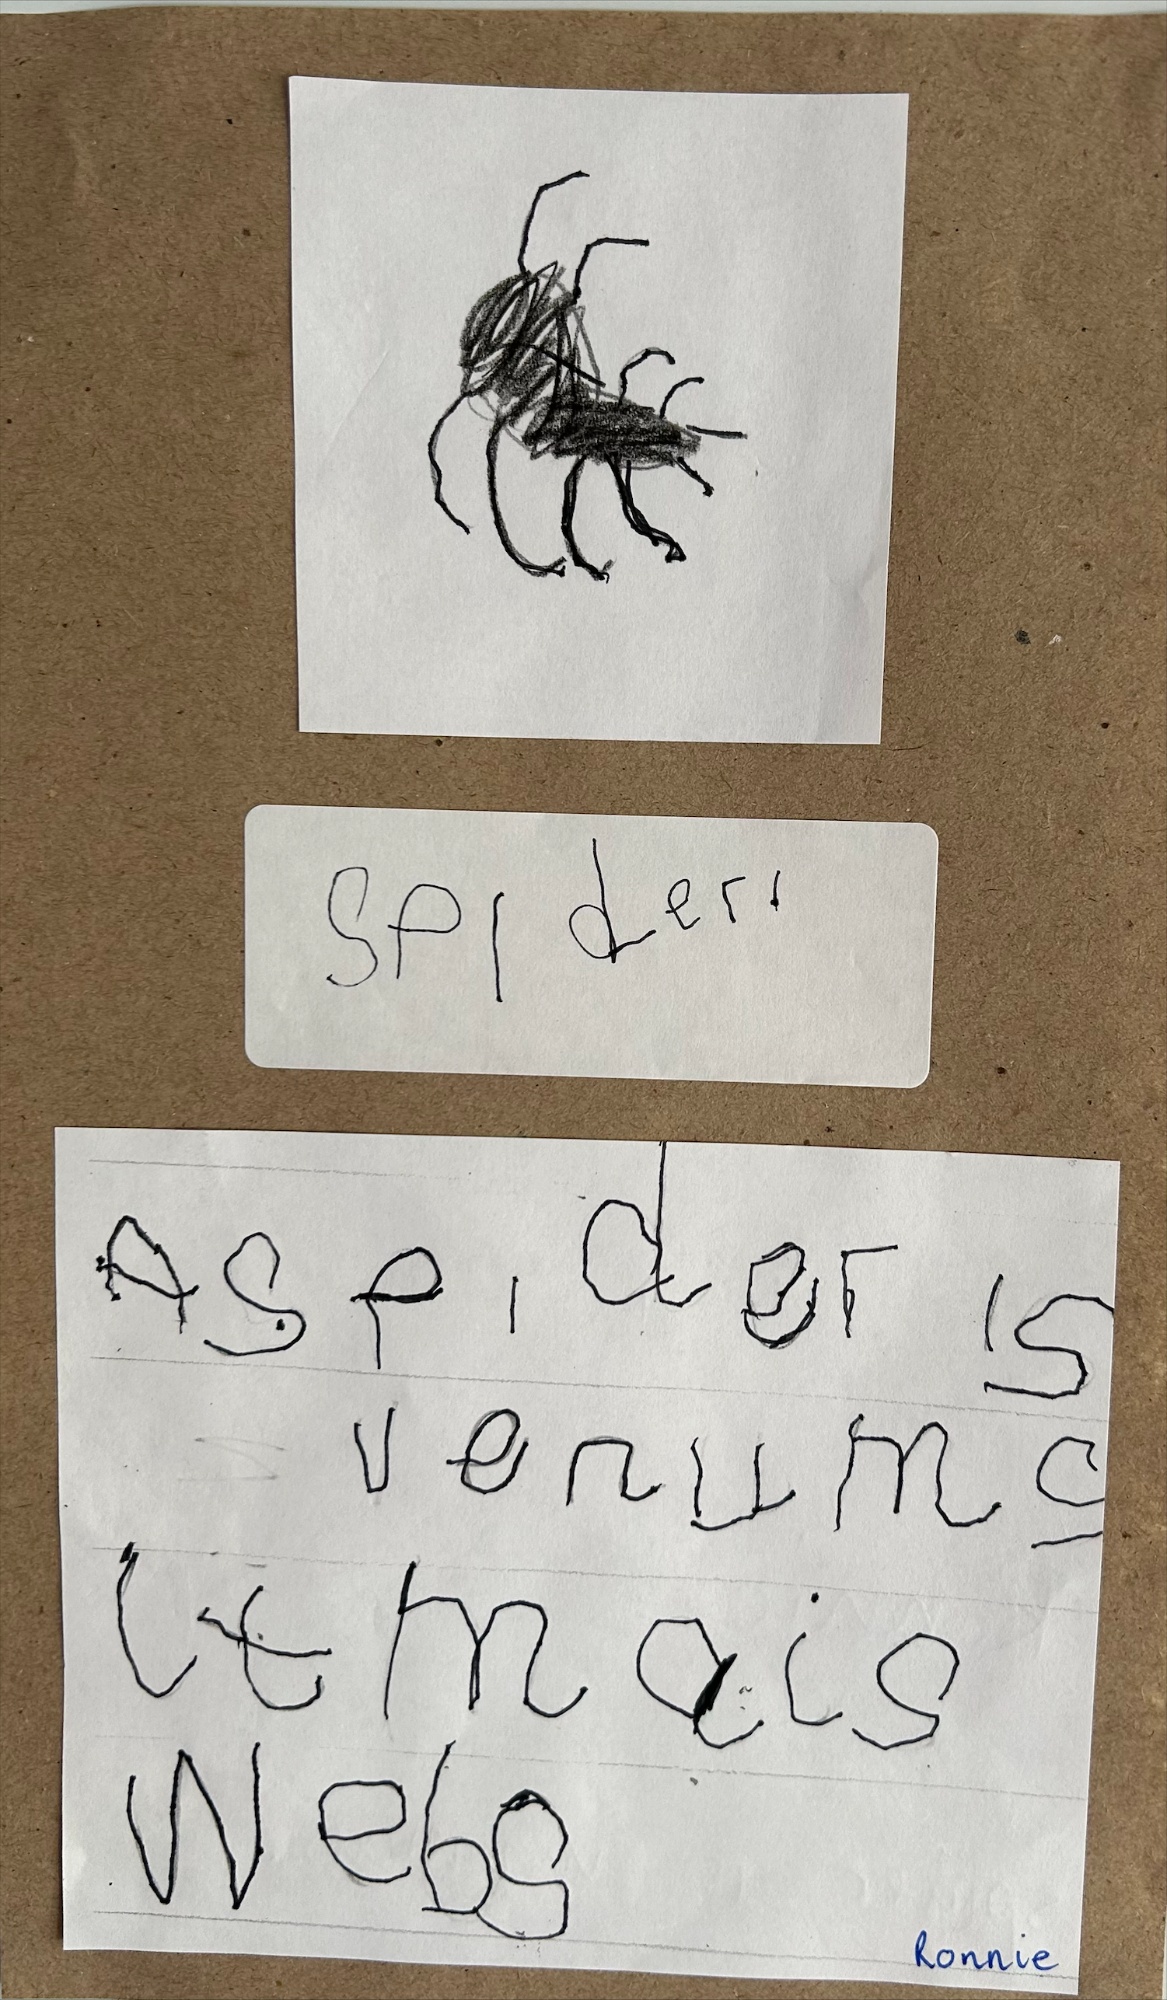 SPider
A spider is
venums
It mais
Webs
Ronnie